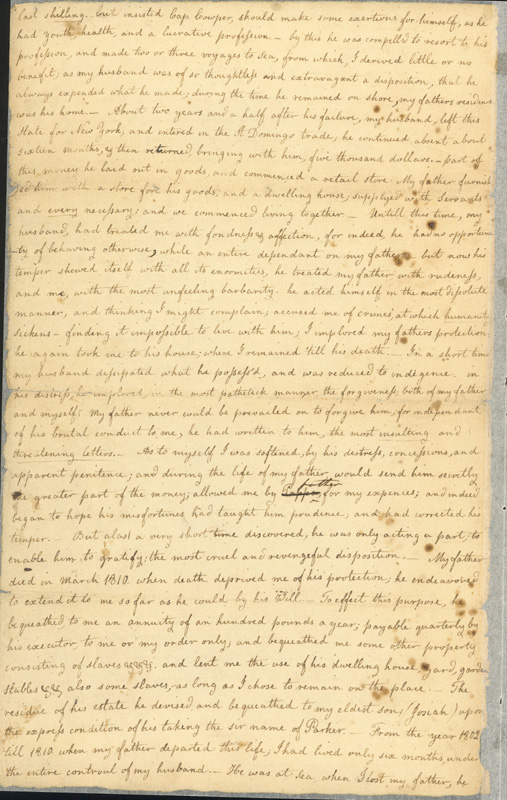 last shilling.- but insisted Cap: Cowper, should make some exertions for himself, as he
had youth, health, and a lucrative profession - by this he was compell'd to resort to his
profession, and made two or three voyages to Sea, from which, I derived little or no
benefit; as my husband was of so thoughtless and extravagant a disposition, that he
always expended what he made; during the time he remained on shore, my fathers residence
was his home.- About two years and a half after his failure, my husband, left this
State for New York, and entered in the St Domingo trade, he continued absent about
sixteen months, & then returned, bringing with him, five thousand dollars.- part of
this, money he laid out in goods, and commenced a retail store. My father furnish
ed him with a store for his goods, and a dwelling house, supplyed with Servants
and every necessary; and we commenced living together.- Untill this time, my
husband, had treated me with fondness & affection, for indeed, he had no opportuni
ty of behaving otherwise, while an entire dependant on my father - but now his
temper shewed itself with all its enormities, he treated my father with rudeness,
and me, with the most unfeeling barbarity. he acted himself in the most dissolute
manner, and thinking I might complain; accused me of crimes, at which humanity
sickens - finding it impossible to live with him; I implored my fathers protection,
he again took me to his house; where I remained till his death.- In a short time
my husband dissipated what he posses'd, and was reduced to indegence. in
his distress, he implored, in the most pathetick manner the forgiveness, both of my father
and myself: My father never would be prevailed on to forgive him; for independant
of his brutal conduct to me, he had written to him, the most insulting and
threatening letters.- As to myself I was softened, by his distress, concessions, and
apparent penitence; and during the life of my father, would send him secretly
the greater part of the money, allowed me by father for my expences; and indeed
began to hope his misfortunes had taught him prudence, and had corrected his
temper.- But alas! a very short time discovered, he was only acting a part, to
enable him to gratify; the most cruel and revengeful disposition.- My father
died in March 1810. when death deprived me of his protection; he endeavored
to extend it to me so far as he could by his Will.- To effect this purpose, he
bequeathed to me an annuity of an hundred pounds a year; payable quarterly by
his executor, to me or my order only; and bequeathed me some other property
consisting of slaves &c &c. and lent me the use of his dwelling house, yard, garden
stables &c, also some slaves, as long as I chose to remain on the place.- The
residue of his estate he devised and bequeathed to my eldest son (Josiah) upon
the express condition of his taking the sir name of Parker.- From the year 1802
till 1810 when my father departed this life; I had lived only six months, under
the entire controul of my husband.- He was at Sea when I lost my father, he